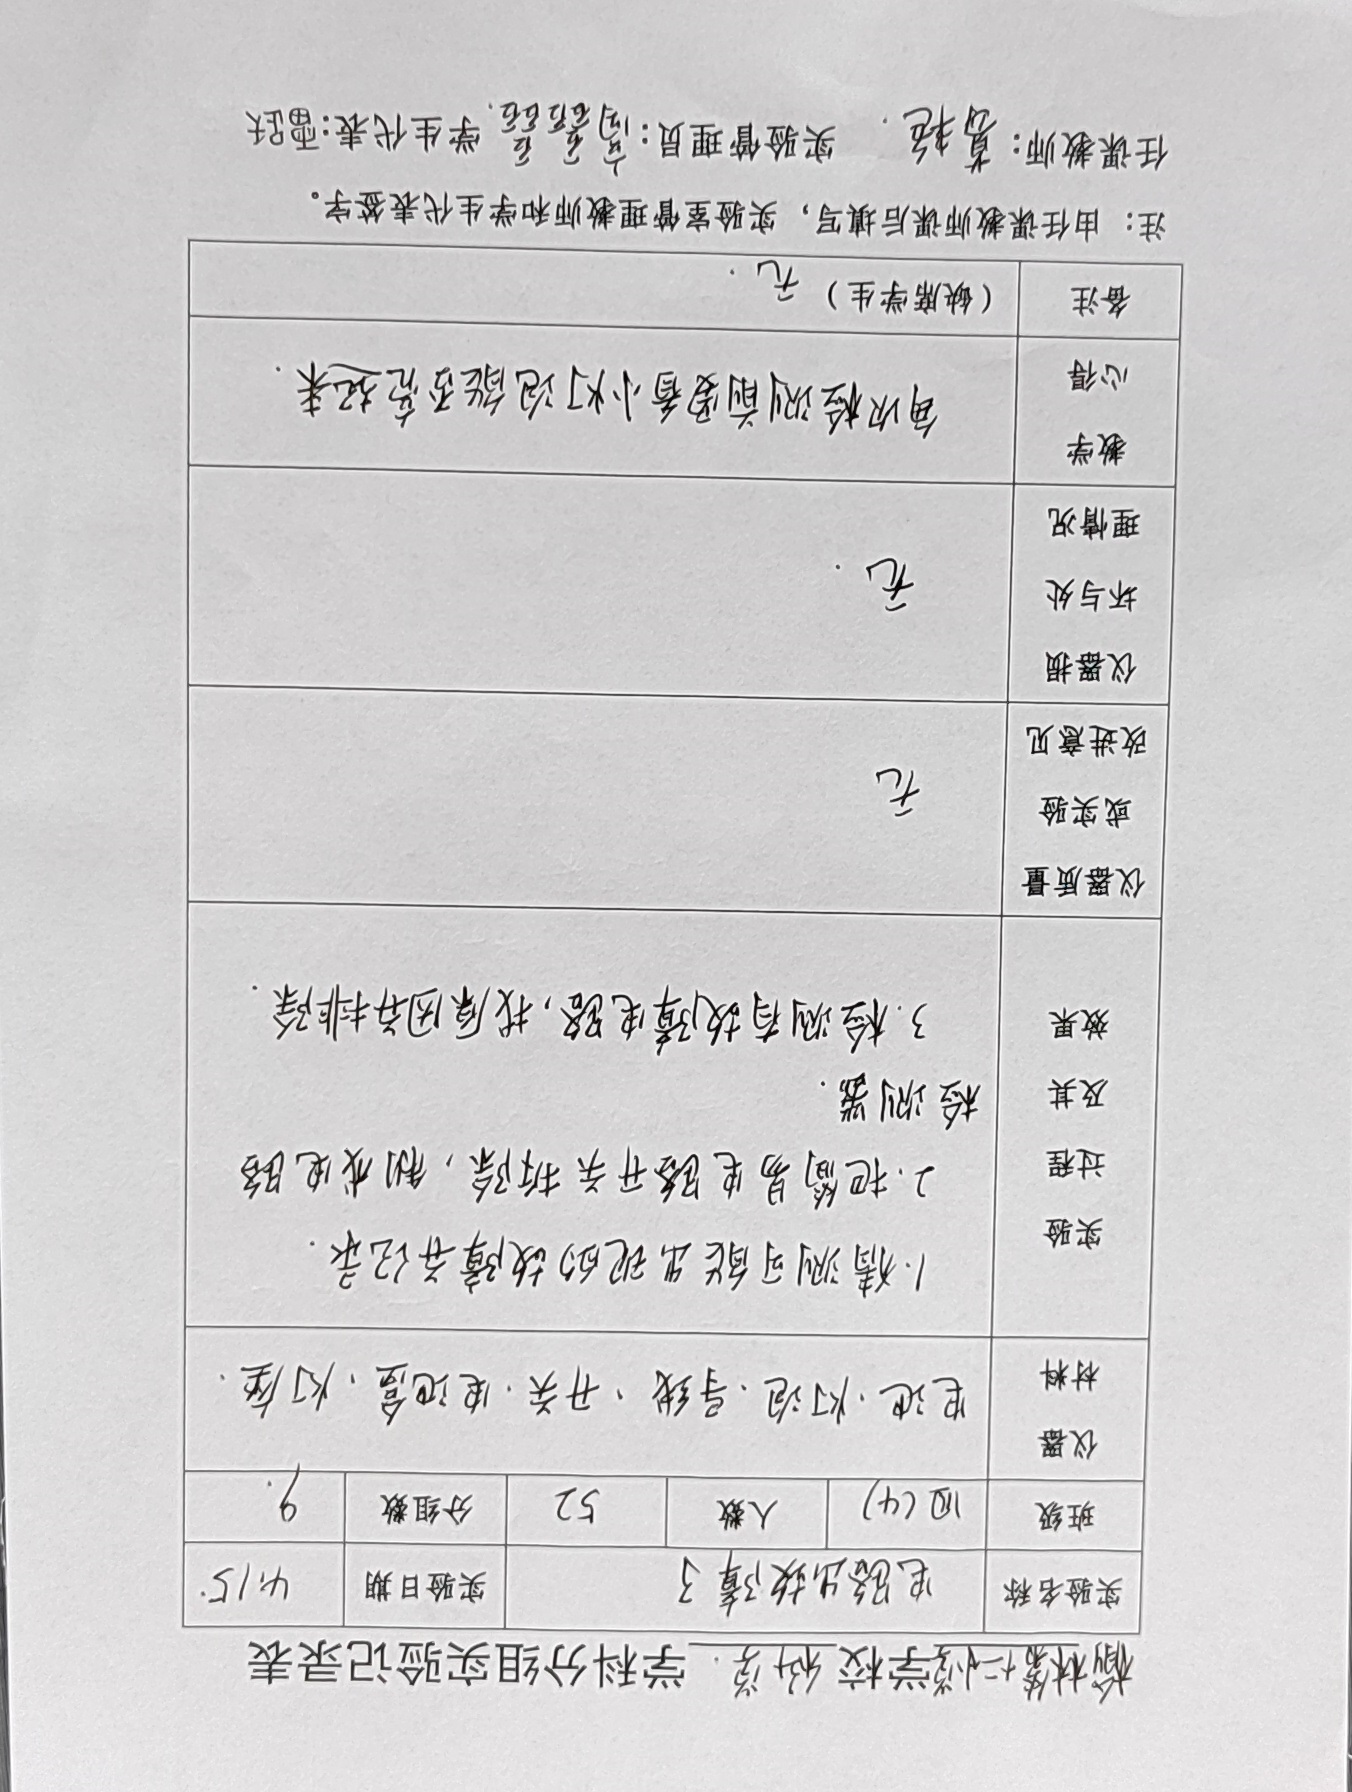 榆林第十二小学学校 科学 学科分组实验记录表
实验名称 电路出故障了 实验日期 4.15.
班级 四(4) 人数 52 分组数 9.
仪器 材料 电池、灯泡、导线、开关、电池盒、灯座.
实验 过程 及其 效果
1.猜测可能出现的故障并记录.
2.把简易电路开关拆除,制成电路
检测器.
3.检测有故障电路,找原因并排除.
仪器质量 或实验 改进意见 无
仪器损 坏与处 理情况 无.
教学 心得 每次检测前要看小灯泡能否亮起来.
备注 (缺席学生) 无.
注:由任课教师课后填写,实验室管理教师和学生代表签字。
任课教师: 实验管理员: 学生代表: